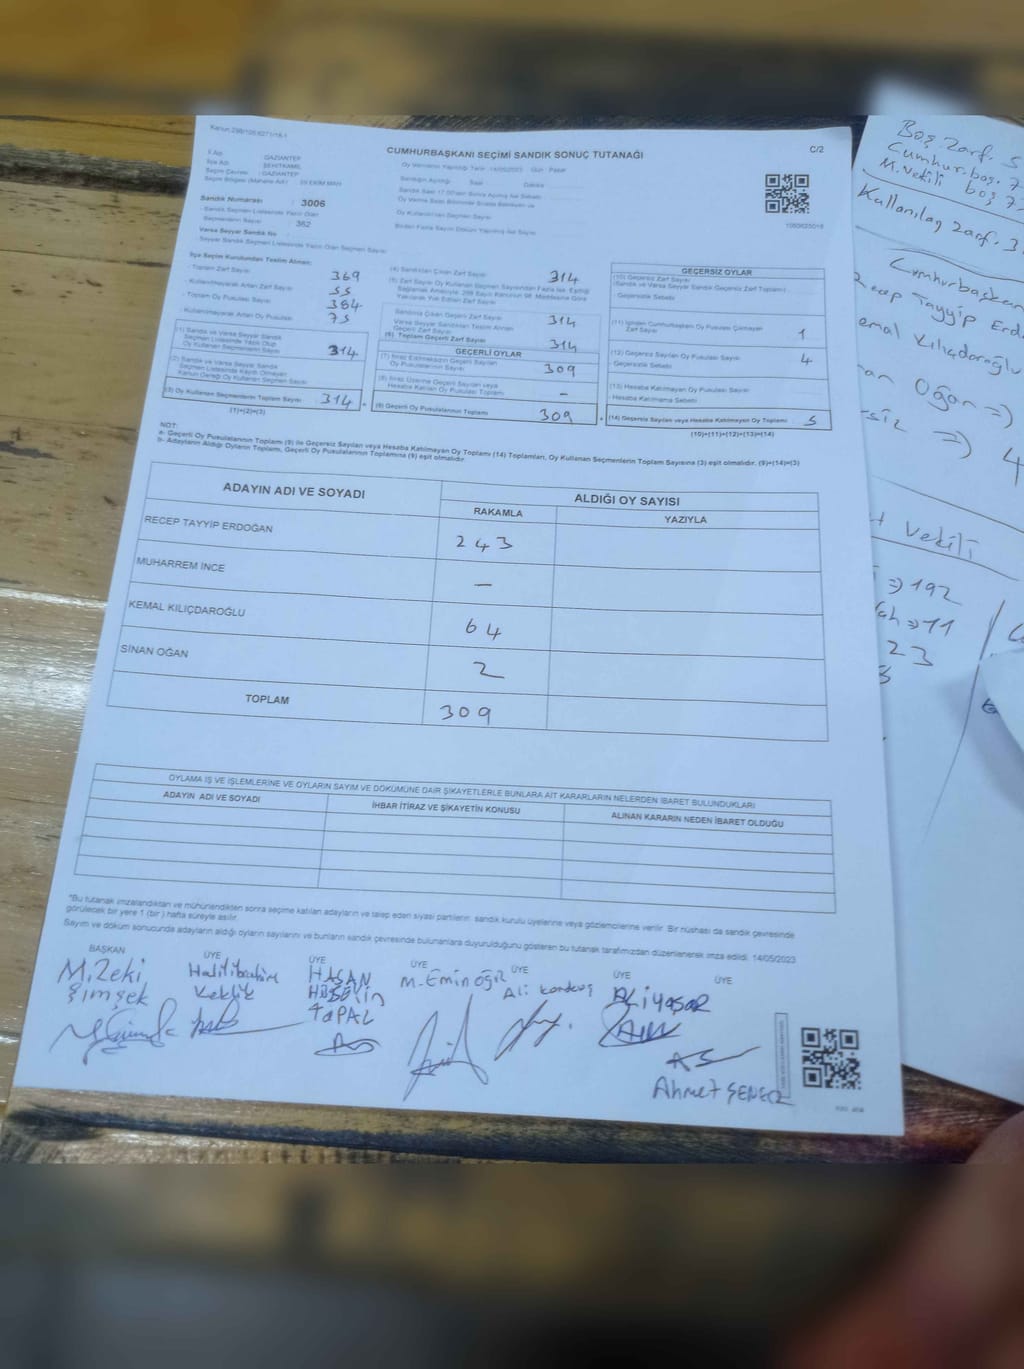 Kanun:298/105 6271/18-1
C/2
CUMHURBAŞKANI SEÇİMİ SANDIK SONUÇ TUTANAĞI
İl Adı : GAZİANTEP
İlçe Adı : ŞEHİTKAMİL
Seçim Çevresi : GAZİANTEP
Seçim Bölgesi (Mahalle Adı) : 29 EKİM MAH
Sandık Numarası : 3006
- Sandık Seçmen Listesinde Yazılı Olan
Seçmenlerin Sayısı : 362
Varsa Seyyar Sandık No
- Seyyar Sandık Seçmen Listesinde Yazılı Olan Seçmen Sayısı
Oy Vermenin Yapıldığı Tarih : 14/05/2023 Gün : Pazar
Sandığın Açıldığı : Saat Dakika
Sandık Saat 17.00'den Sonra Açılmış İse Sebebi
Oy Kullananların Seçmen Sayısı
Birden Fazla Sayım Döküm Yapılmış İse Sayısı
İlçe Seçim Kurulundan Teslim Alınan:
- Toplam Zarf Sayısı 369
- Kullanılmayarak Artan Zarf Sayısı 55
- Toplam Oy Pusulası Sayısı 384
- Kullanılmayarak Artan Oy Pusulası 75
(1) Sandık ve Varsa Seyyar Sandık
Seçmen Listesinde Yazılı Olup
Oy Kullanan Seçmenlerin Sayısı 314
(2) Sandık ve Varsa Seyyar Sandık
Seçmen Listesinde Kayıtlı Olmayan
Kanun Gereği Oy Kullanan Seçmen Sayısı
(3) Oy Kullanan Seçmenlerin Toplam Sayısı 314
(1)+(2)=(3)
(4) Sandıktan Çıkan Zarf Sayısı 314
(5) Zarf Sayısı Oy Kullanan Seçmen Sayısından Fazla İse, Eşitliği
Sağlamak Amacıyla; 298 Sayılı Kanunun 98. Maddesine Göre
Yakılarak Yok Edilen Zarf Sayısı
Sandıkta Çıkan Geçerli Zarf Sayısı 314
Varsa Seyyar Sandıktan Teslim Alınan
Geçerli Zarf Sayısı
(6) Toplam Geçerli Zarf Sayısı 314
GEÇERLİ OYLAR
(7) İtiraz Edilmeksizin Geçerli Sayılan
Oy Pusulalarının Sayısı 309
(8) İtiraz Üzerine Geçerli Sayılan veya
Hesaba Katılan Oy Pusulası Toplamı -
(9) Geçerli Oy Pusulalarının Toplamı 309
GEÇERSİZ OYLAR
(10) Geçersiz Zarf Sayısı
(Sandık ve Varsa Seyyar Sandık Geçersiz Zarf Toplamı)
- Geçersizlik Sebebi
(11) İçinden Cumhurbaşkanı Oy Pusulası Çıkmayan
Zarf Sayısı 1
(12) Geçersiz Sayılan Oy Pusulası Sayısı 4
- Geçersizlik Sebebi
(13) Hesaba Katılmayan Oy Pusulası Sayısı
- Hesaba Katılmama Sebebi
(14) Geçersiz Sayılan veya Hesaba Katılmayan Oy Toplamı 5
(10)+(11)+(12)+(13)=(14)
NOT:
a- Geçerli Oy Pusulalarının Toplamı (9) ile Geçersiz Sayılan veya Hesaba Katılmayan Oy Toplamı (14) Toplamları, Oy Kullanan Seçmenlerin Toplam Sayısına (3) eşit olmalıdır. (9)+(14)=(3)
b- Adayların Aldığı Oyların Toplamı, Geçerli Oy Pusulalarının Toplamına (9) eşit olmalıdır.
ADAYIN ADI VE SOYADI
ALDIĞI OY SAYISI
RAKAMLA
YAZIYLA
RECEP TAYYİP ERDOĞAN 243
MUHARREM İNCE -
KEMAL KILIÇDAROĞLU 64
SİNAN OĞAN 2
TOPLAM 309
OYLAMA İŞ VE İŞLEMLERİNE VE OYLARIN SAYIM VE DÖKÜMÜNE DAİR ŞİKAYETLERLE BUNLARA AİT KARARLARIN NELERDEN İBARET BULUNDUKLARI
ADAYIN ADI VE SOYADI
İHBAR İTİRAZ VE ŞİKAYETİN KONUSU
ALINAN KARARIN NEDEN İBARET OLDUĞU
"Bu tutanak imzalandıktan ve mühürlendikten sonra seçime katılan adayların ve talep eden siyasi partilerin: sandık kurulu üyelerine veya gözlemcilerine verilir. Bir nüshası da sandık çevresinde
görülecek bir yere 1 (bir ) hafta süreyle asılır.
Sayım ve döküm sonucunda adayların aldığı oyların sayılarını ve bunların sandık çevresinde bulunanlara duyurulduğunu gösteren bu tutanak tarafımızdan düzenlenerek imza edildi. 14/05/2023
BAŞKAN
M.Zeki
Şimşek
ÜYE
Halil İbrahim
Keklik
ÜYE
HASAN
HÜSEYİN
TOPAL
ÜYE
M. Emin
ÜYE
Ali
ÜYE
Ali Yaşar
ÜYE
Ahmet ŞENER
Boş. Zarf. 5
Cumhur. baş. 7
M. Vekili boş 7
Kullanılan zarf. 3
Cumhurbaşkan
Recep Tayyip Erd
emal Kılıçdaroğlu
nan Oğan =)
rsiz =) 4
t Vekili
=> 192
=> 11
23